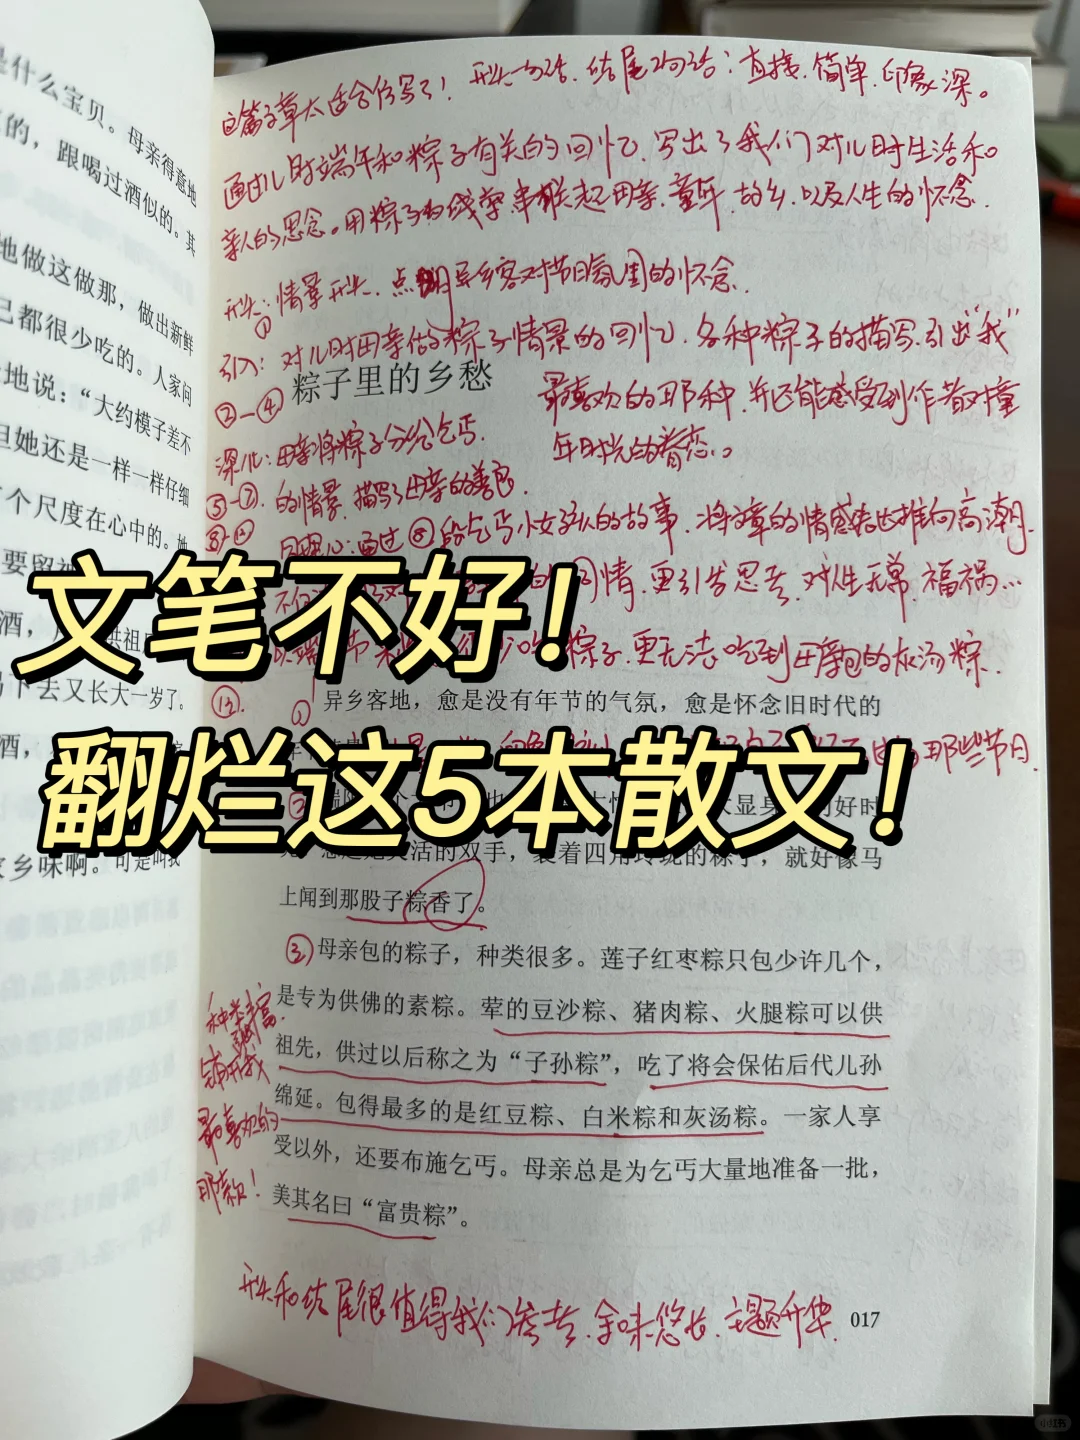 是什么宝贝。母亲得意地
的，跟喝过酒似的。其
地做这做那，做出新鲜
己都很少吃的。人家问
地说：“大约模子差不
但她还是一样一样仔细
个尺度在心中的。她
要留
酒，
下去又长大一岁了。
酒，
家乡味啊。可是叫我
这篇文章太适合仿写了！开头一句话、结尾2句话：直接、简单、印象深。
通过儿时端午和粽子有关的回忆、写出了我们对儿时生活和
亲人的思念。用粽子为线索，串联起母亲、童年、故乡、以及人生的怀念
开头：情景开头、点明异乡客对节日氛围的怀念、
①
引入：对儿时母亲做的粽子情景的回忆、各种粽子的描写、引出“我”
②—④
粽子里的乡愁
最喜欢的那种、并还能感受到作者对童
年时光的眷恋。
深化：母亲将粽子分给乞丐、
⑤—⑦
的情景、描写了母亲的善良、
通过⑧段乞丐小女孩的故事、将文章的情感表达推向高潮、
的同情、更引发思考、对人生无常、福祸…
粽子、更无法吃到母亲包的灰汤粽、
⑬
①
异乡客地，愈是没有年节的气氛，愈是怀念旧时代的
那些节日
②
文笔不好！
翻烂这5本散文！
大显身手的好时
灵活的双手，裹着四角玲珑的粽子，就好像马
上闻到那股子粽香了。
③母亲包的粽子，种类很多。莲子红枣粽只包少许几个，
是专为供佛的素粽。荤的豆沙粽、猪肉粽、火腿粽可以供
祖先，供过以后称之为“子孙粽”，吃了将会保佑后代儿孙
绵延。包得最多的是红豆粽、白米粽和灰汤粽。一家人享
受以外，还要布施乞丐。母亲总是为乞丐大量地准备一批，
美其名曰“富贵粽”。
种类丰富、
最喜欢的
那款！
开头和结尾很值得我们参考、余味悠长、主题升华
017
小红书